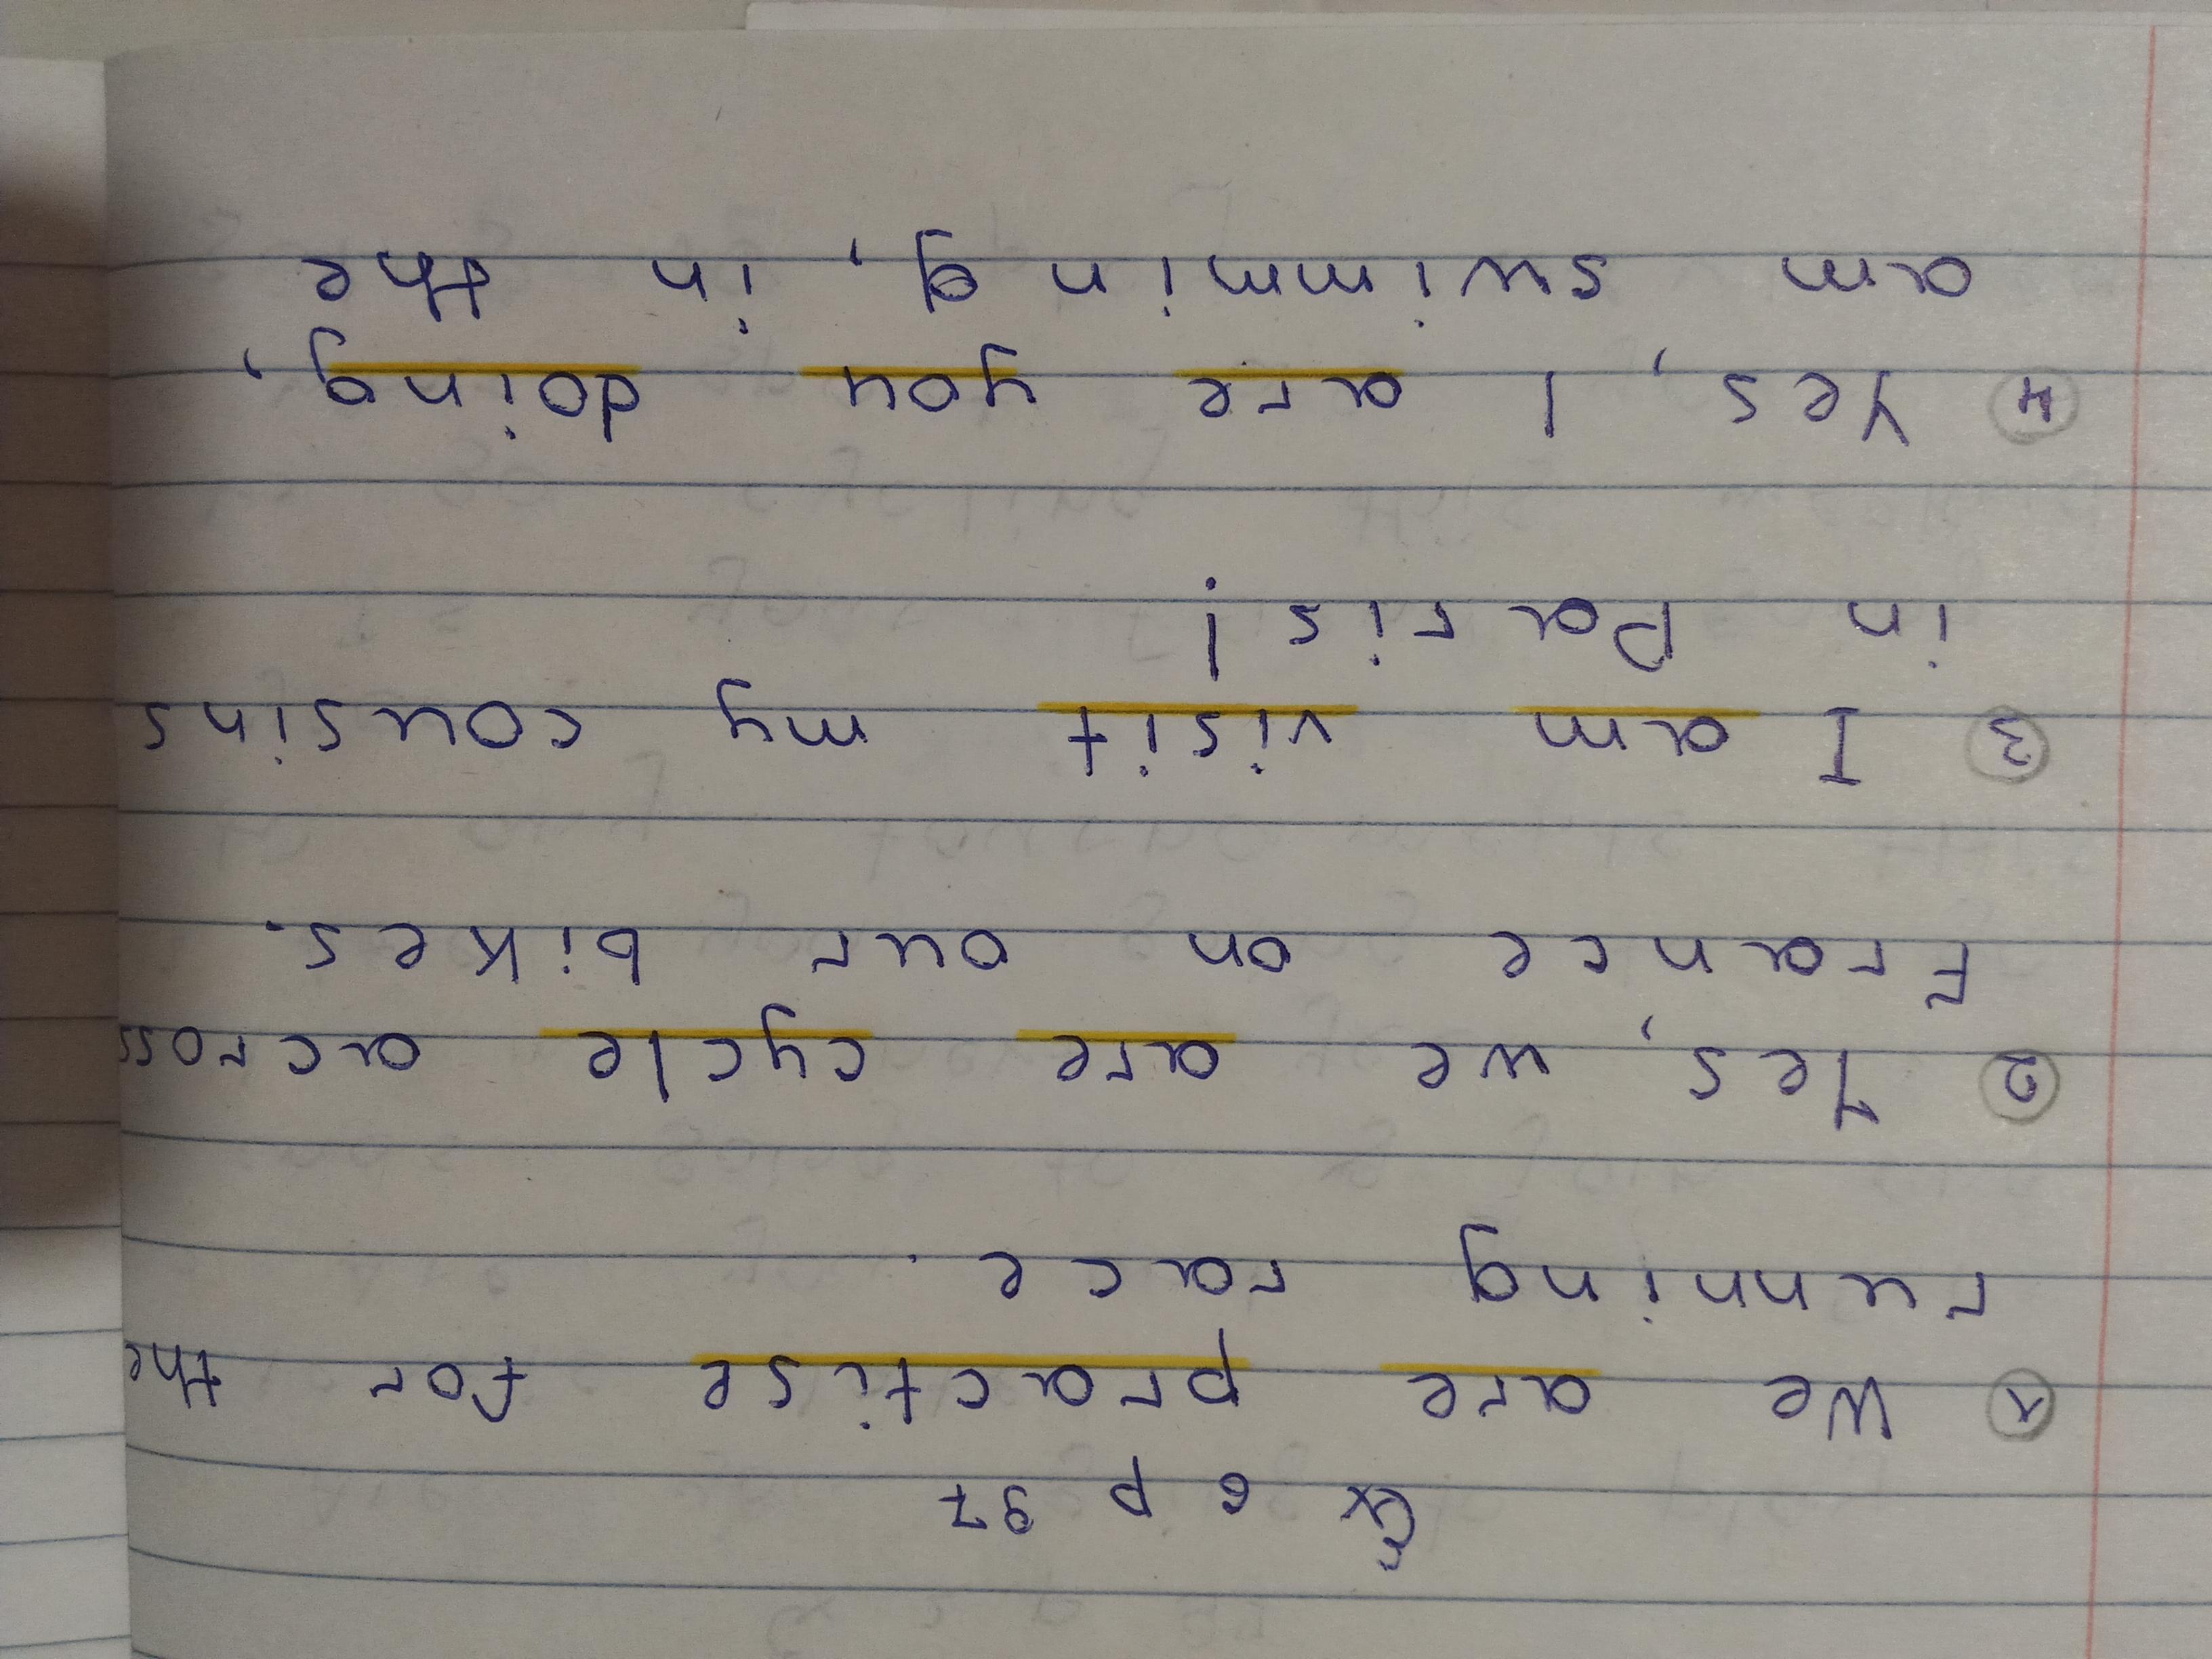 Ex 6 p 97
1 We are practise for the
running race.
2 Yes, we are cycle across
France on our bikes.
3 I am visit my cousins
in Paris!
4 Yes, I are you doing,
am swimming, in the